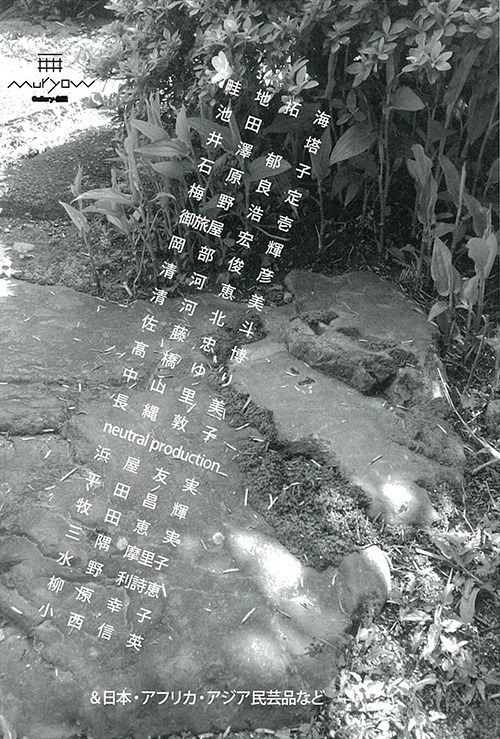 muryow
Gallery無量
畦地拓海
池田 塔
井澤郁子
石原良定
梅野浩壱
御旅屋宏輝
岡部俊彦
清河恵美
清河北斗
佐藤忠博
髙橋ゆり
中山里美
長縄敦子
neutral production_
浜屋友実
平田昌輝
牧田恵実
三隅摩里子
水野利詩恵
柳原幸子
小西信英
&日本・アフリカ・アジア民芸品など